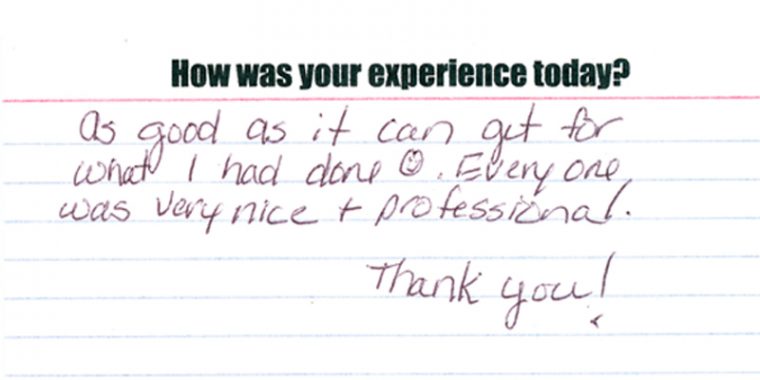 How was your experience today?
As good as it can get for
what I had done ☺. Every one
was very nice + professional.
Thank you!